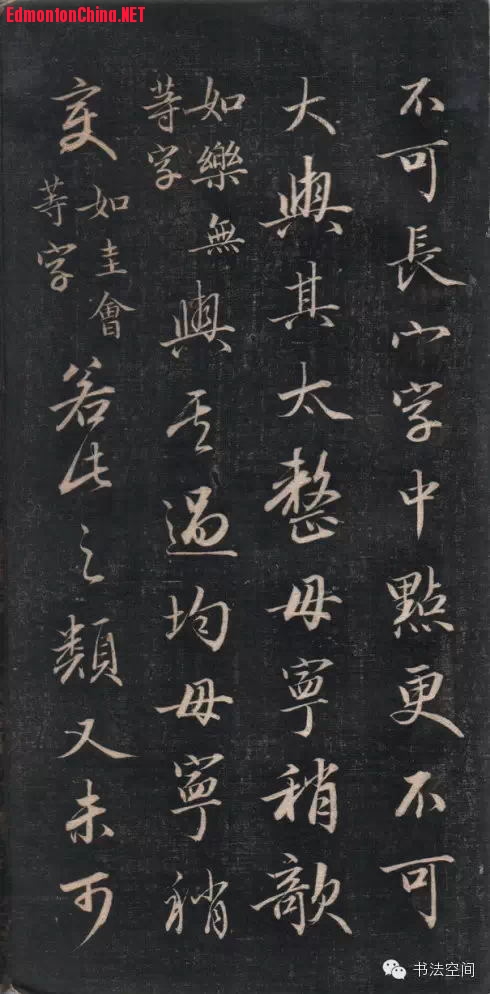 EdmontonChina.NET
不可長宀字中點更不可
大與其太整毋寧稍欹
如樂無
等字
與其過均毋寧稍
変
如圭會
等字
若此之類又未可
书法空间